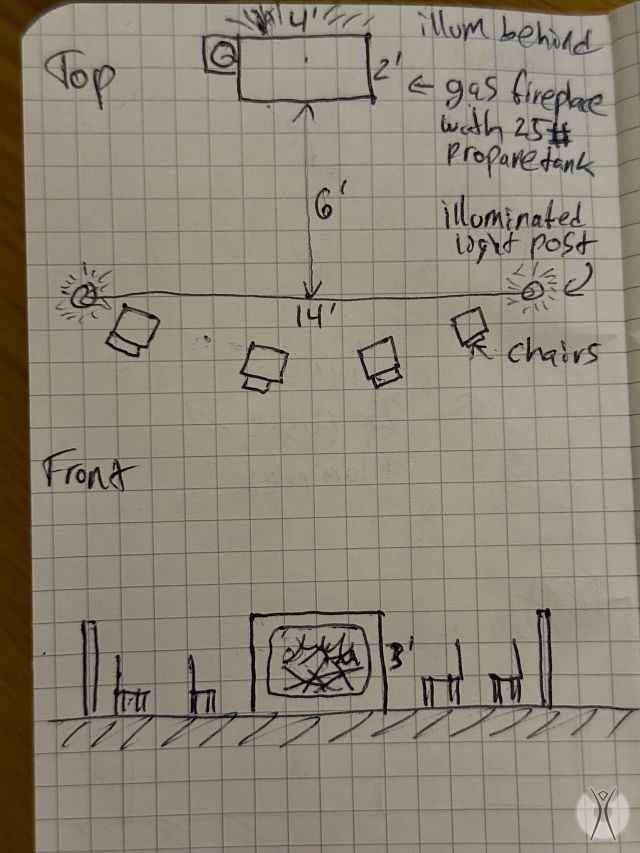 Top
4'
illum behind
2'
← gas fireplace
with 25#
propane tank
6'
illuminated
light post
14'
chairs
Front
3'